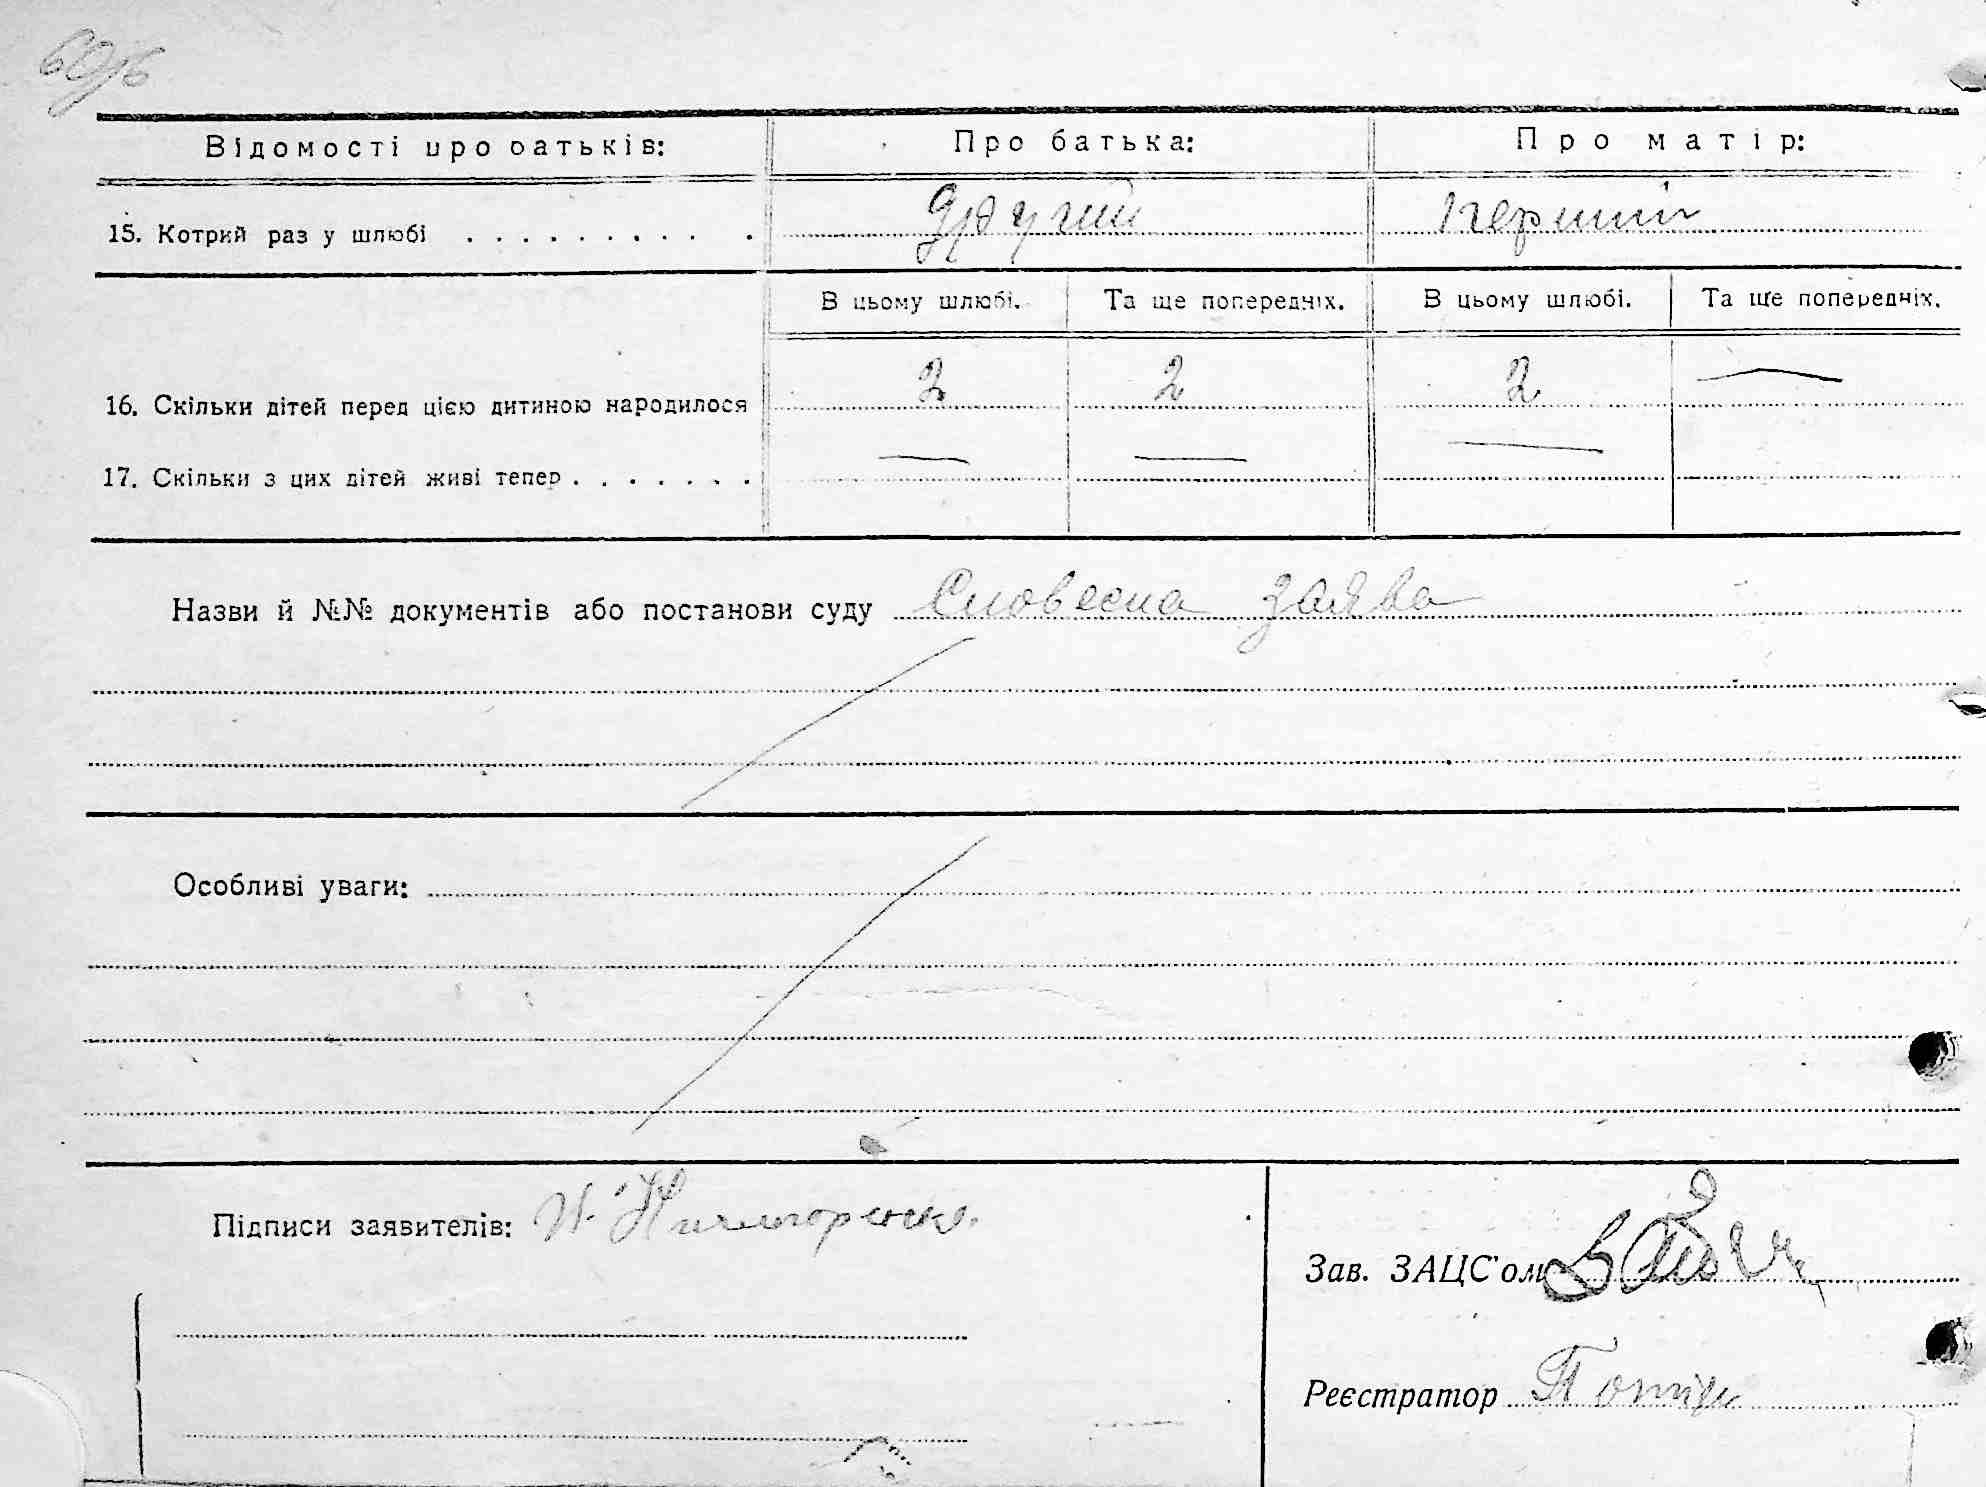 Відомості про батьків: Про батька: Про матір:
15. Котрий раз у шлюбі . . . . . . . . . . другий перший
В цьому шлюбі. Та ще попередніх. В цьому шлюбі. Та ще попередніх.
16. Скільки дітей перед цією дитиною народилося 2 2 2 —
17. Скільки з цих дітей живі тепер . . . . . . . — — —
Назви й №№ документів або постанови суду Словесна заява
Особливі уваги:
Підписи заявителів:
Зав. ЗАЦС'ом
Реєстратор